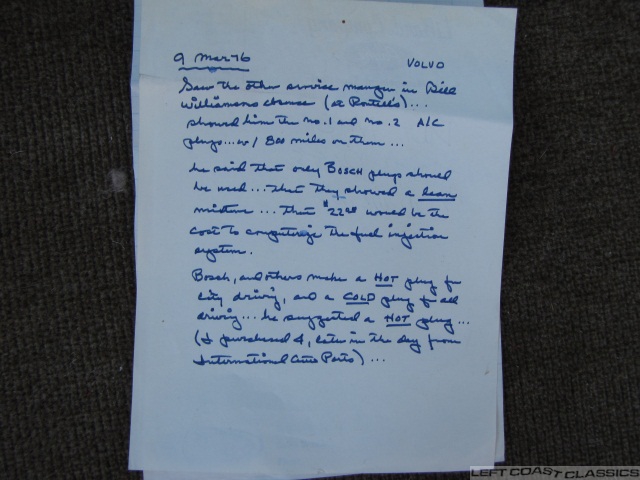 9 Mar 76 VOLVO
Saw the other service manager in Bill
Williamsons absence (at Pontello's)...
showed him the no.1 and no.2 A/C
plugs...w/ 800 miles on them...
he said that only BOSCH plugs should
be used...that they showed a lean
mixture...that $22.00 would be the
cost to computerize the fuel injection
system.
Bosch, and others make a HOT plug for
city driving, and a COLD plug for all
driving...he suggested a HOT plug...
(I purchased 4, late in the day from
International Auto Parts)...
LEFT COAST CLASSICS